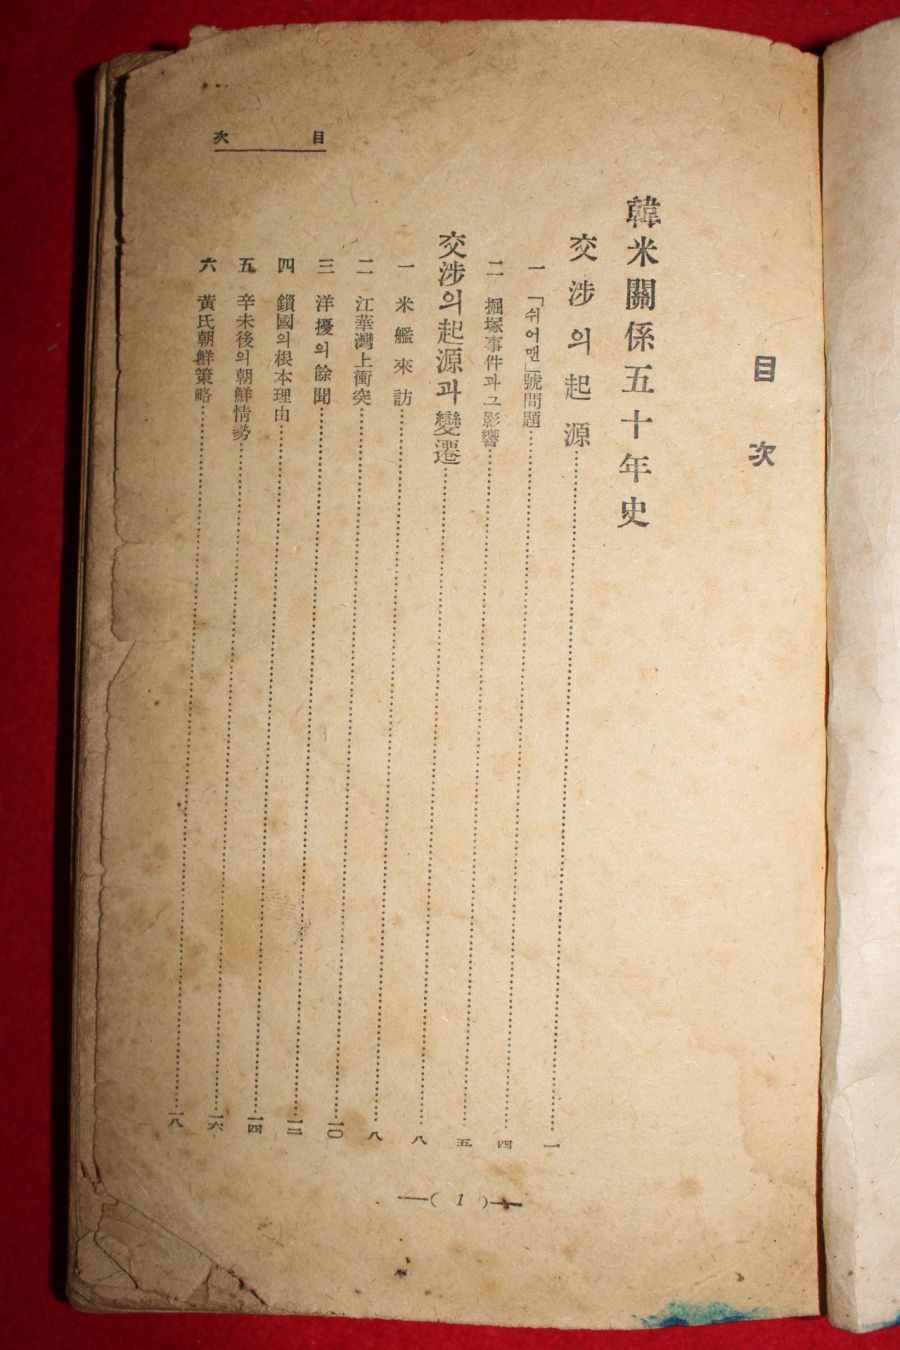 目次
韓米關係五十年史
交涉의起源……………………一
一 「쉬어맨」號問題……………………四
二 掘塚事件과그影響……………………五
交涉의起源과變遷……………………八
一 米艦來訪……………………八
二 江華灣上衝突……………………一〇
三 洋擾의餘聞……………………一二
四 鎖國의根本理由……………………一四
五 辛未後의朝鮮情勢……………………一六
六 黃氏朝鮮策略……………………一八
目次
—( 1 )—